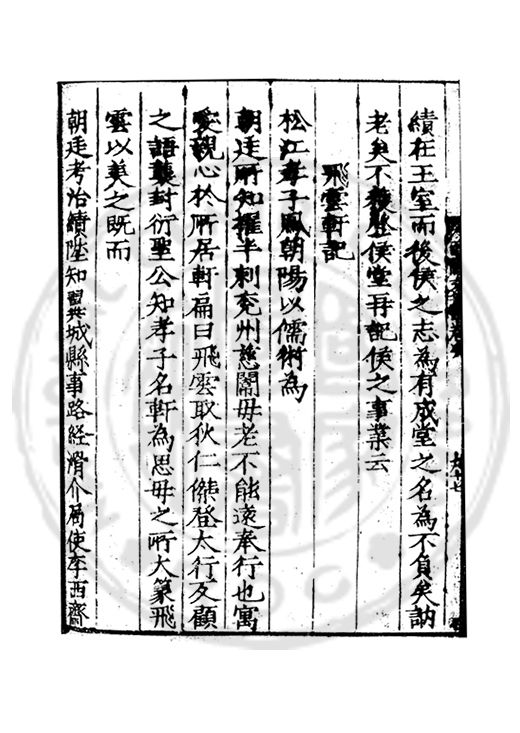 績在王室而後侯之志為有成堂之名為不負矣訥
老矣不獲登侯堂再記侯之事業云
飛雲軒記
松江孝子鳳朝陽以儒術為
朝廷所知擢半刺兖州慈闈毋老不能遠奉行也寓
愛親心於所居軒扁曰飛雲取狄仁傑登太行反顧
之語襲封衍聖公知孝子名軒為思毋之所大篆飛
雲以美之既而
朝廷考治績陞知翼城縣事路經滑介局使李西齋